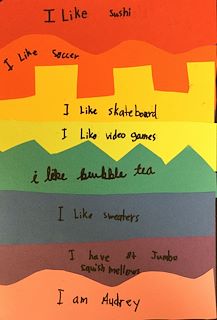 I Like Sushi
I Like Soccer
I Like skateboard
I Like video games
i like bubble tea
I Like sweaters
I have 8+ Jumbo
squishmellows
I am Audrey